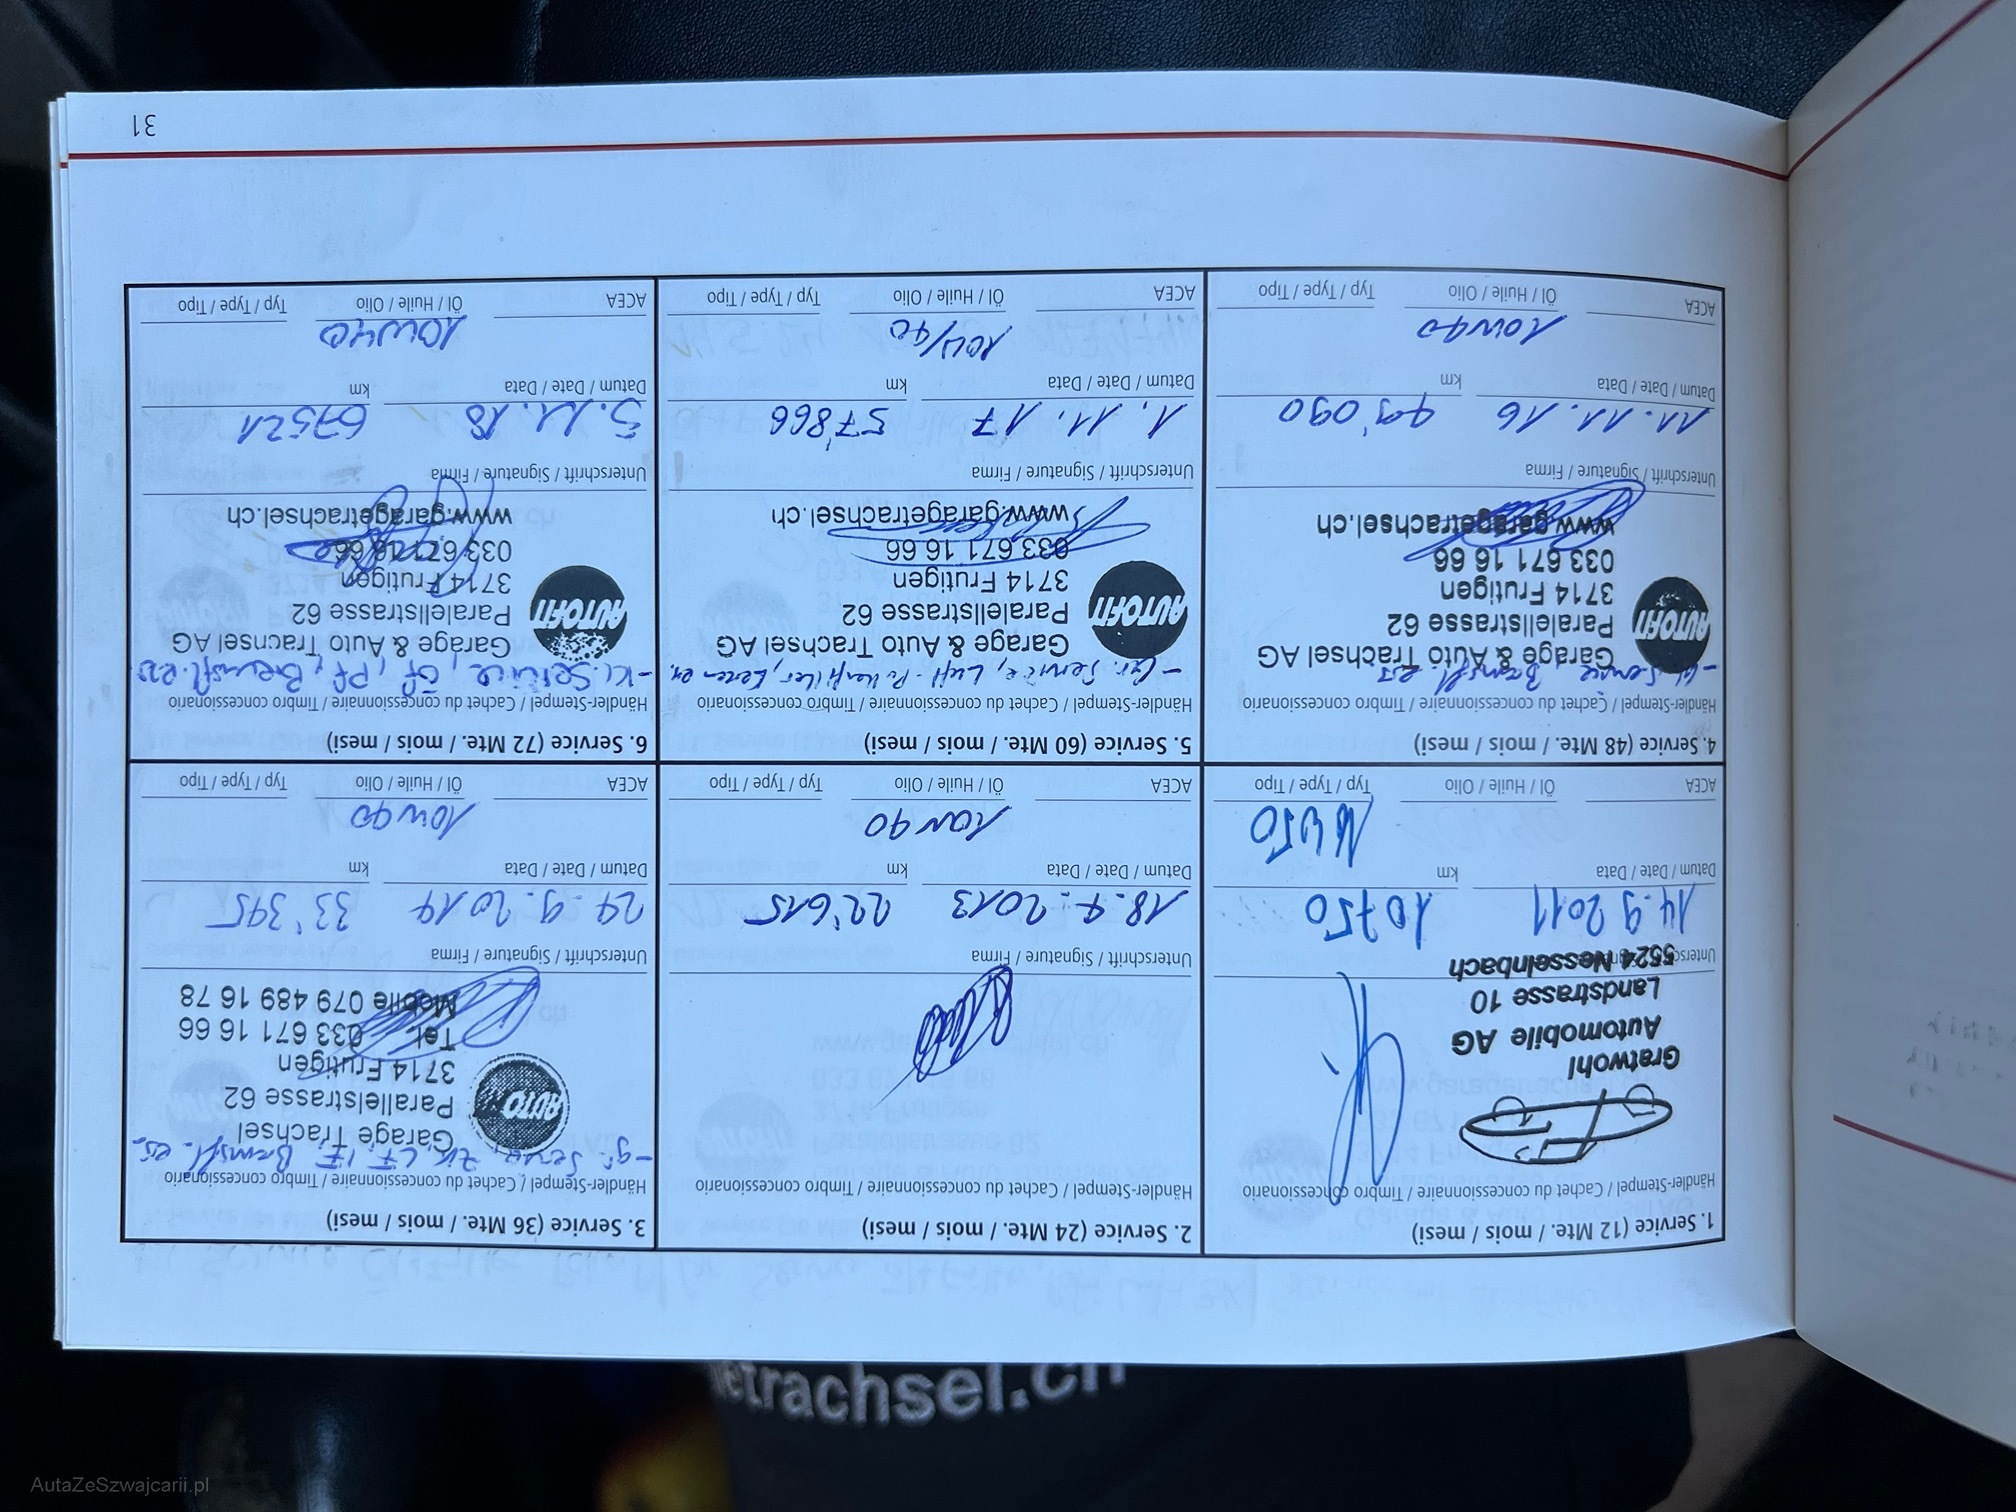 1. Service (12 Mte. / mois / mesi)
Händler-Stempel / Cachet du concessionnaire / Timbro concessionario
Gratwohl
Automobile AG
Landstrasse 10
5524 Nesselnbach
14.9 2011
10750
Datum / Date / Data
km
ACEA
Öl / Huile / Olio
Typ / Type / Tipo
2. Service (24 Mte. / mois / mesi)
Händler-Stempel / Cachet du concessionnaire / Timbro concessionario
Unterschrift / Signature / Firma
22'615
Datum / Date / Data
km
10W40
ACEA
Öl / Huile / Olio
Typ / Type / Tipo
3. Service (36 Mte. / mois / mesi)
Händler-Stempel / Cachet du concessionnaire / Timbro concessionario
AUTO
Garage Trachsel
Parallelstrasse 62
3714 Frutigen
Tel. 033 671 16 66
Mobile 079 489 16 78
Unterschrift / Signature / Firma
33'395
Datum / Date / Data
km
10W40
ACEA
Öl / Huile / Olio
Typ / Type / Tipo
4. Service (48 Mte. / mois / mesi)
Händler-Stempel / Cachet du concessionnaire / Timbro concessionario
AUTOFIT
Garage & Auto Trachsel AG
Paralellstrasse 62
3714 Frutigen
033 671 16 66
www.garagetrachsel.ch
Unterschrift / Signature / Firma
11.11.16
Datum / Date / Data
km
10W40
ACEA
Öl / Huile / Olio
Typ / Type / Tipo
5. Service (60 Mte. / mois / mesi)
Händler-Stempel / Cachet du concessionnaire / Timbro concessionario
- Gr. Service, Luft-Pollenfilter, Kerzen ers.
AUTOFIT
Garage & Auto Trachsel AG
Paralellstrasse 62
3714 Frutigen
033 671 16 66
www.garagetrachsel.ch
Unterschrift / Signature / Firma
1. 11. 17
57'866
Datum / Date / Data
km
10W/40
ACEA
Öl / Huile / Olio
Typ / Type / Tipo
6. Service (72 Mte. / mois / mesi)
Händler-Stempel / Cachet du concessionnaire / Timbro concessionario
- Kl. Service, ÖF, PF, Bremsfl. ers
AUTOFIT
Garage & Auto Trachsel AG
Paralellstrasse 62
3714 Frutigen
033 671 16 66
www.garagetrachsel.ch
Unterschrift / Signature / Firma
5.11.18
67521
Datum / Date / Data
km
10W40
ACEA
Öl / Huile / Olio
Typ / Type / Tipo
31
etrachsel.ch
AutaZeSzwajcarii.pl